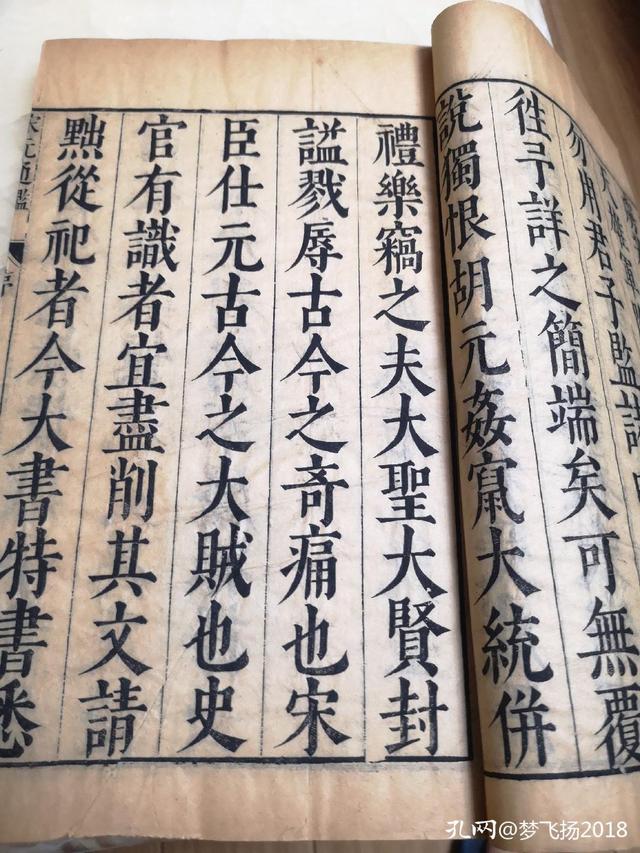 勿用君子監
徃予詳之簡端矣可無覆
說獨恨胡元姦竄大統併
禮樂竊之夫大聖大賢封
謚戮辱古今之奇痛也宋
臣仕元古今之大賊也史
官有識者宜盡削其文請
黜從祀者今大書特書悉
宋元通鑑 序
孔网@梦飞扬2018